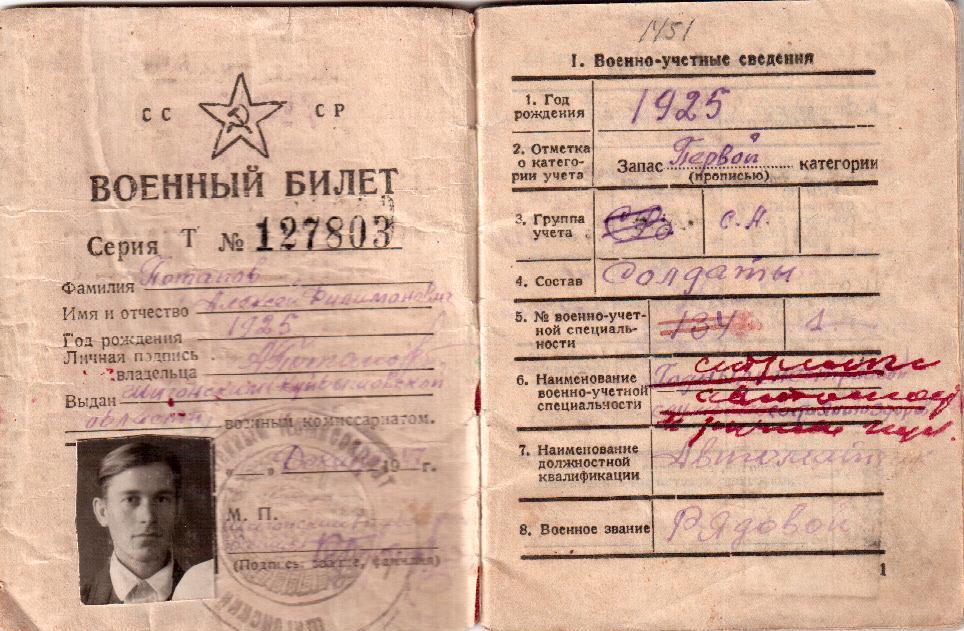 СС СР
ВОЕННЫЙ БИЛЕТ
Серия Т № 127803
Фамилия Потапов
Имя и отчество Алексей Филимонович
Год рождения 1925
Личная подпись
владельца АПотапов
Выдан Шигонским Куйбышевской
области военным комиссариатом.
19 г.
М. П.
(Подпись, звание, фамилия)
1451
I. Военно-учетные сведения
1. Год
рождения 1925
2. Отметка
о катего-
рии учета Запас Первой категории
(прописью)
3. Группа
учета С.А.
4. Состав Солдаты
5. № военно-учет-
ной специаль-
ности 134 1
6. Наименование
военно-учетной
специальности
7. Наименование
должностной
квалификации Автоматчик
8. Военное звание Рядовой
1